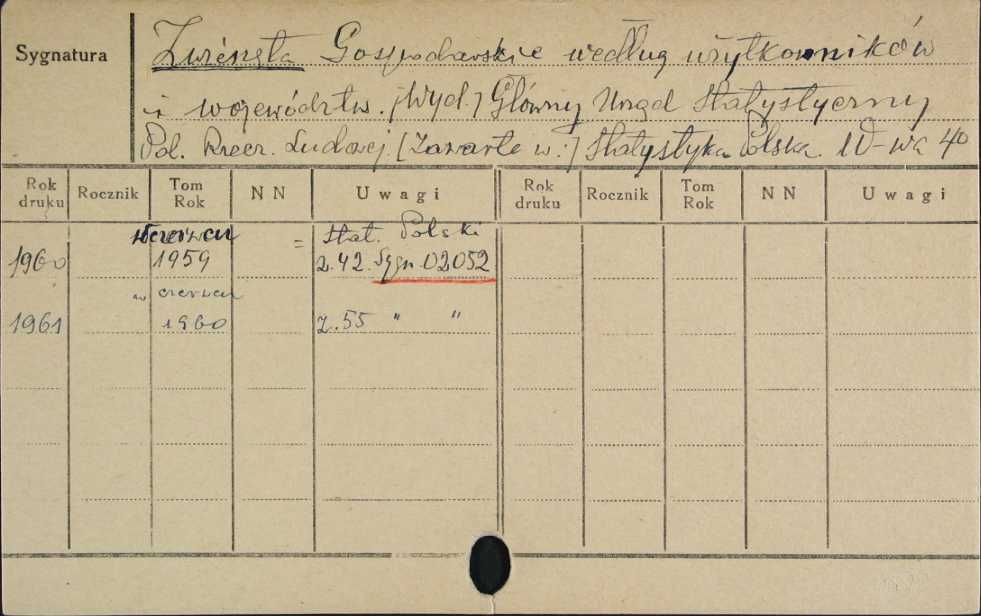 Sygnatura
Zwierzęta Gospodarskie według użytkowników
i województw. /Wyd./ Główny Urząd Statystyczny
Pol. Rzecz. Ludowej. [Zawarte w:] Statystyka Polska. W-wa 4°
Rok druku Rocznik Tom Rok NN Uwagi Rok druku Rocznik Tom Rok NN Uwagi
w czerwcu = Stat. Polski
1960 1959 z.42. Sygn. 02052
w czerwcu
1961 1960 z.55 " "